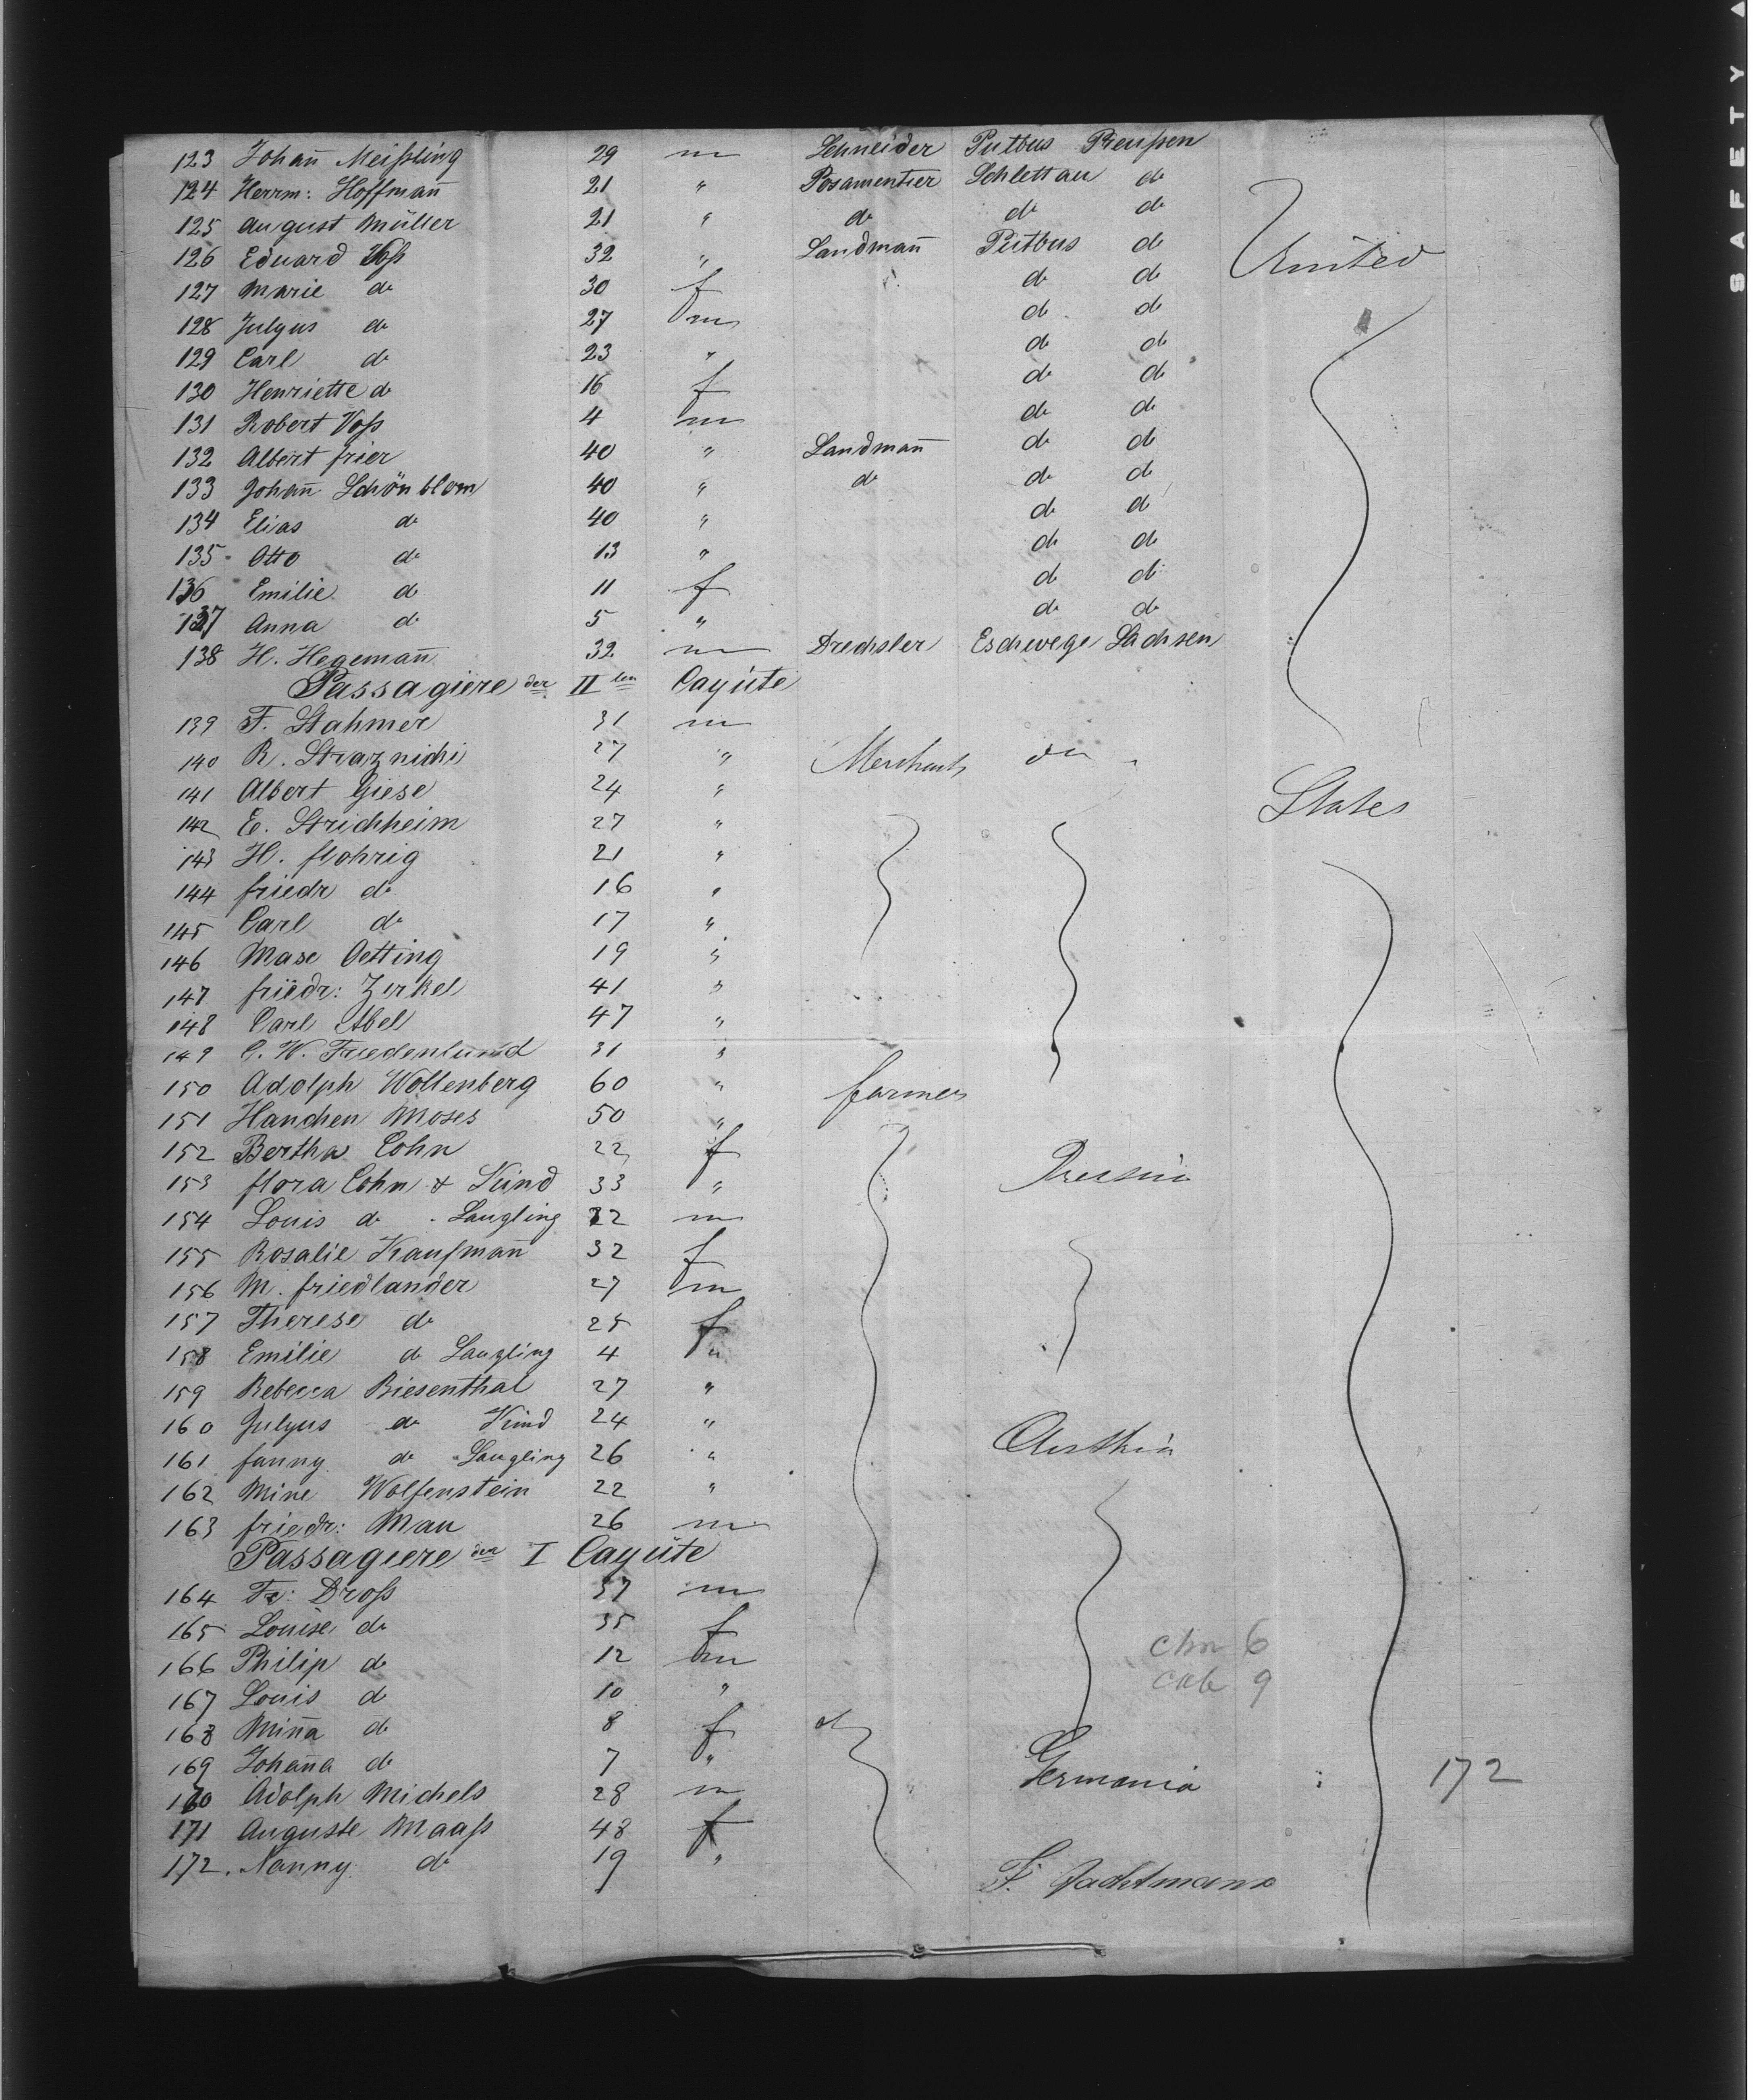 123 Johan̄ Meiſsling 29 m Schneider Putbus Preuſsen
124 Herrm: Hoffman̄ 21 " Posamentier Schlettau do
125 August Müller 21 " do do do
126 Eduard Voſs 32 " Landman̄ Putbus do
United
127 Marie do 30 f do do
128 Julyus do 27 m do do
129 Carl do 23 " do do
130 Henriette do 16 f do do
131 Robert Voſs 4 m do do
132 Albert Frier 40 " Landman̄ do do
133 Johan̄ Schönblom 40 " do do do
134 Elias do 40 " do do
135 Otto do 13 " do do
136 Emilie do 11 f do do
137 Anna do 5 " do do
138 H. Hegeman̄ 32 m Drechsler Eschwege Sachsen
Passagiere der IIten Cayüte
139 F. Stahmer 31 m
140 R. Straznichi 27 " Merchants do
141 Albert Giese 24 "
States
142 E. Strichheim 27 "
143 H. Flohrig 21 "
144 Friedr do 16 "
145 Carl do 17 "
146 Maxe Oetting 19 "
147 Friedr: Zirkel 41 "
148 Carl Abel 47 "
149 C. W. Friedenlund 31 "
150 Adolph Wollenberg 60 " farmer
151 Hanchen Moses 50 "
152 Bertha Cohn 22 f
153 Flora Cohn & Kind 33 " Prussia
154 Louis do Saugling 22 m
155 Rosalie Kaufman̄ 32 f
156 M. Friedlander 27 m
157 Therese do 25 f
158 Emilie do Saugling 4 "
159 Rebecca Biesenthal 27 "
160 Julyus do Kind 24 "
161 Fanny do Saugling 26 " Austria
162 Mine Wolfenstein 22 "
163 Friedr: Mau 26 m
Passagiere der I Cayüte
164 Fr: Droſs 37 m
165 Louise do 35 f
166 Philip do 12 m
chn 6
167 Louis do 10 "
cab 9
168 Min̄a do 8 f
169 Johan̄a do 7 " Germania 172
170 Adolph Michels 28 m
171 Auguste Maaſs 48 f
172. Nanny do 19 "
SAFETY